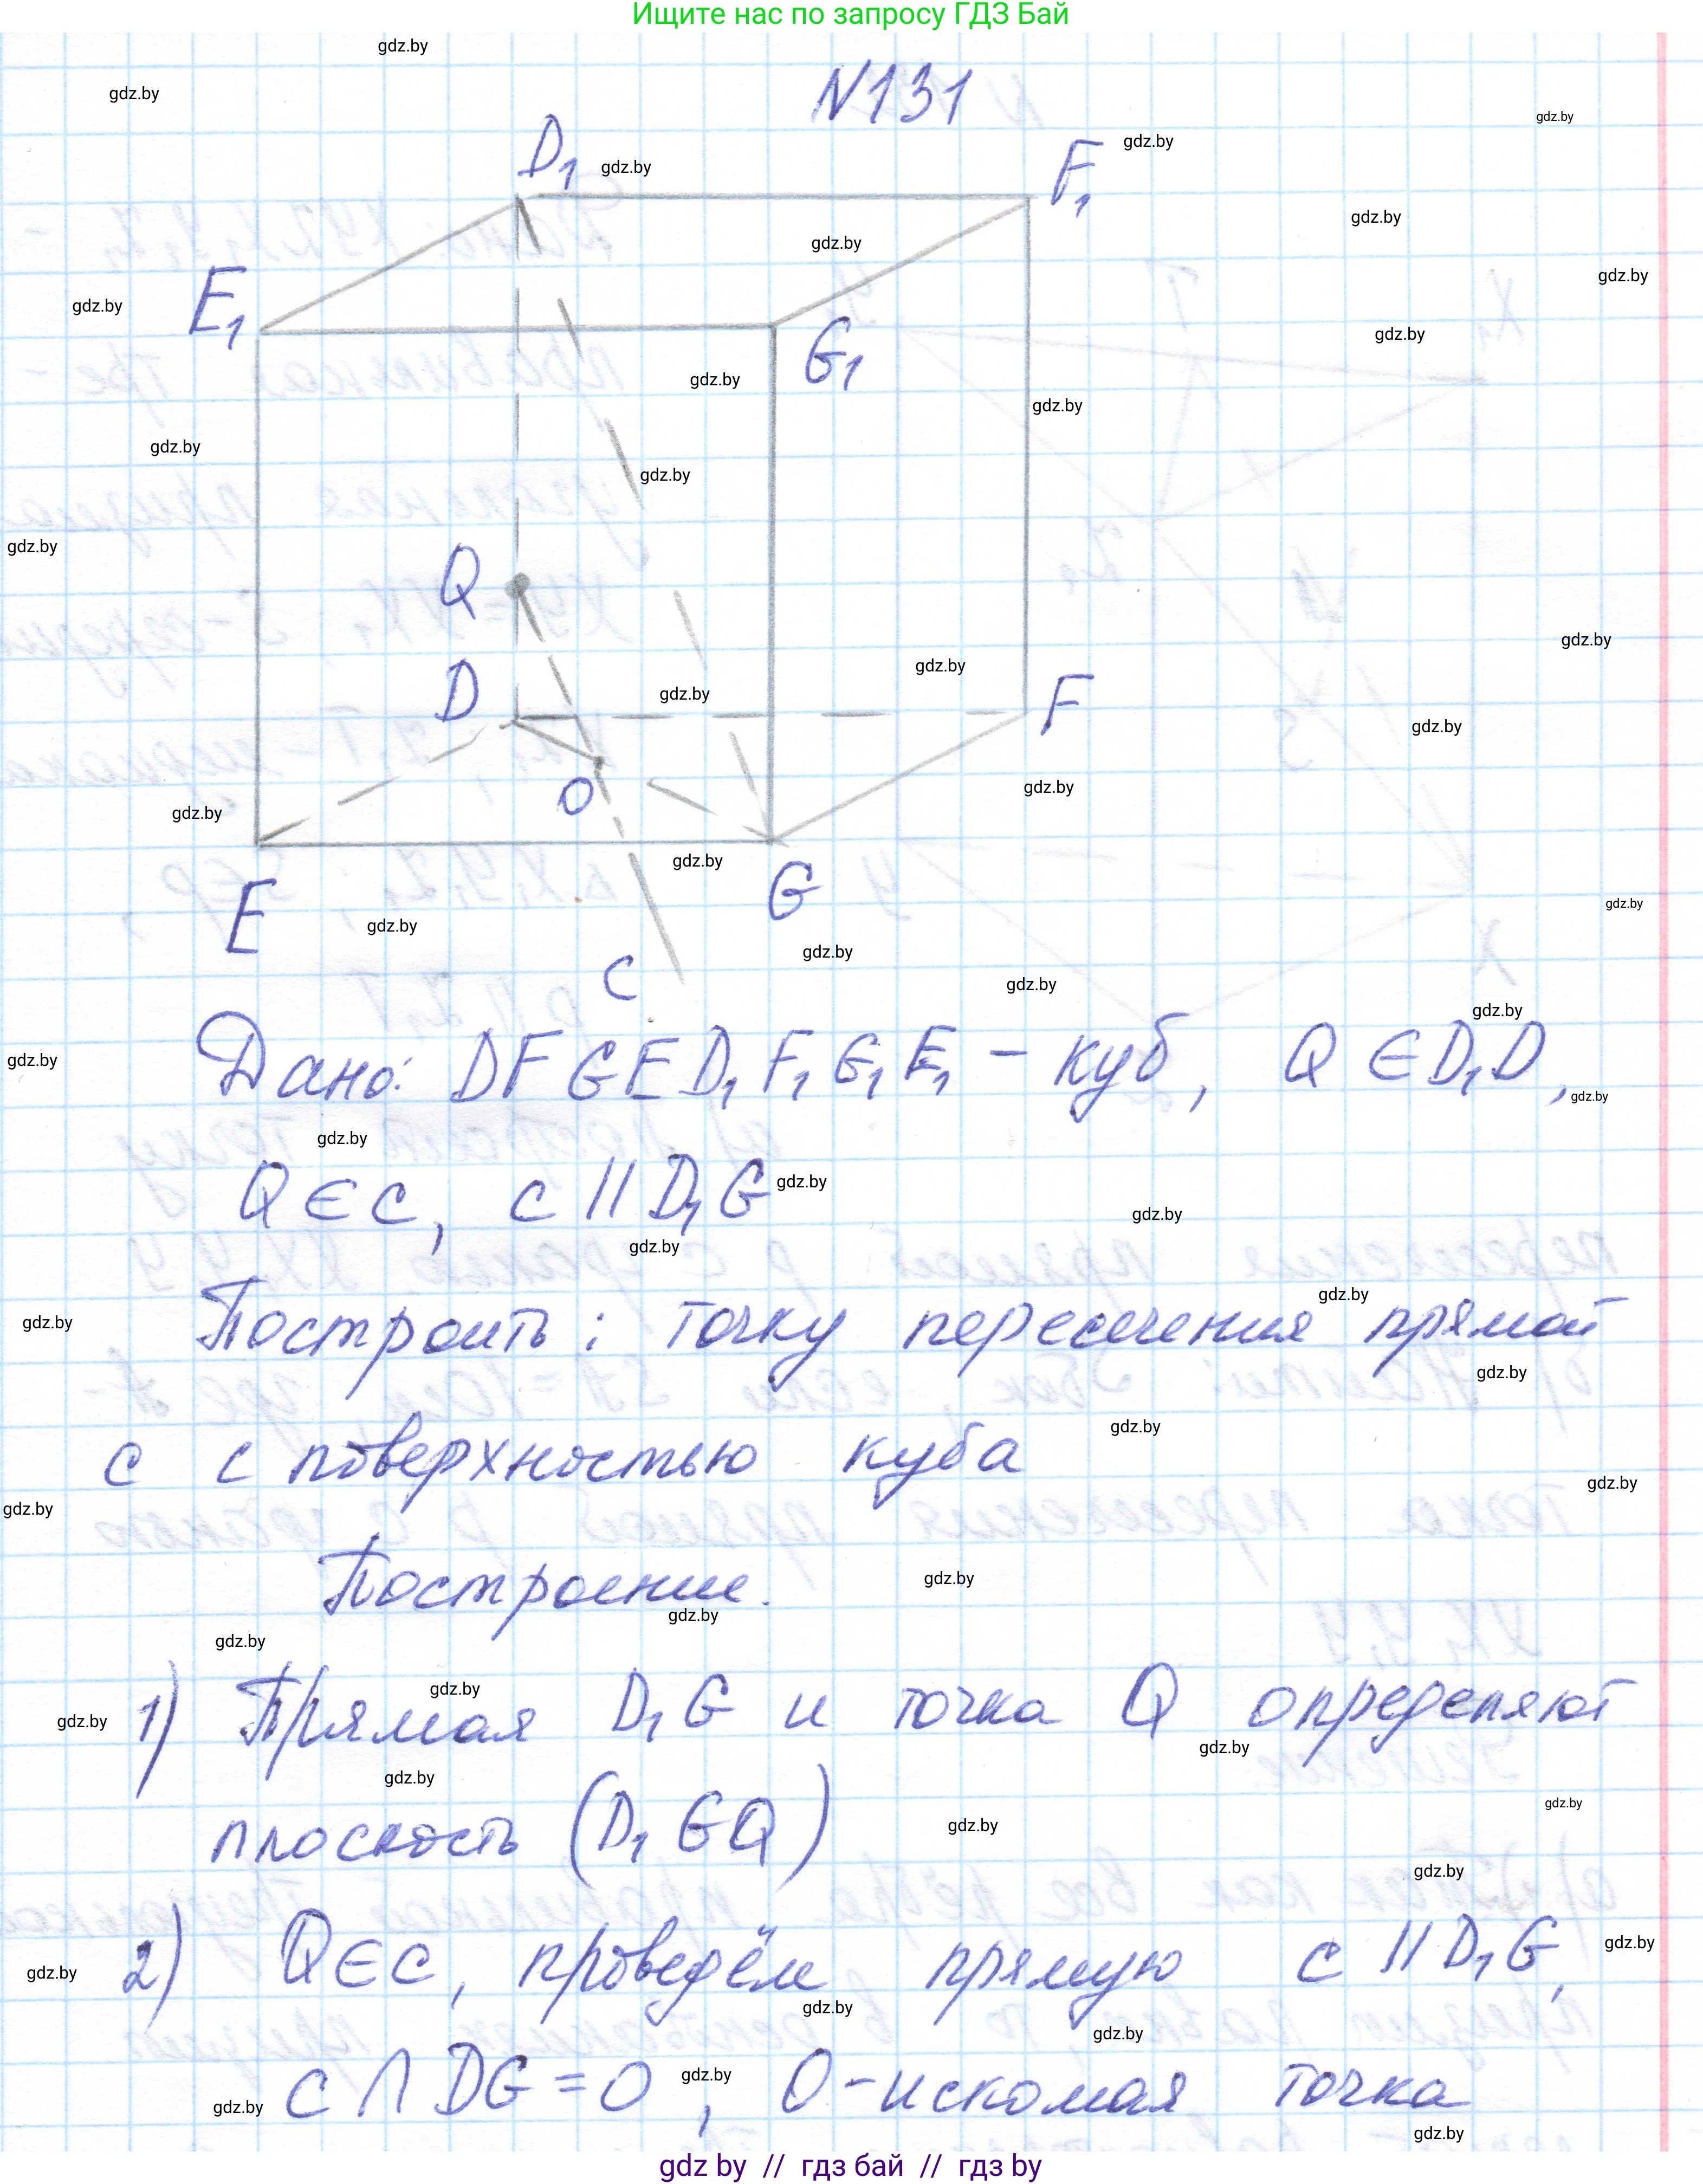 Ищите нас по запросу ГДЗ Бай
N131
D₁
F₁
E₁
G₁
Q
D
F
O
E
G
c
Дано: DFGED₁F₁G₁E₁ – куб, Q ∈ D₁D,
Q ∈ c, c || D₁G
Построить: точку пересечения прямой
c с поверхностью куба
Построение.
1) Прямая D₁G и точка Q определяют
плоскость (D₁GQ)
2) Q ∈ c, проведём прямую c || D₁G,
c ∩ DG = O, O – искомая точка
gdz by // гдз бай // гдз by